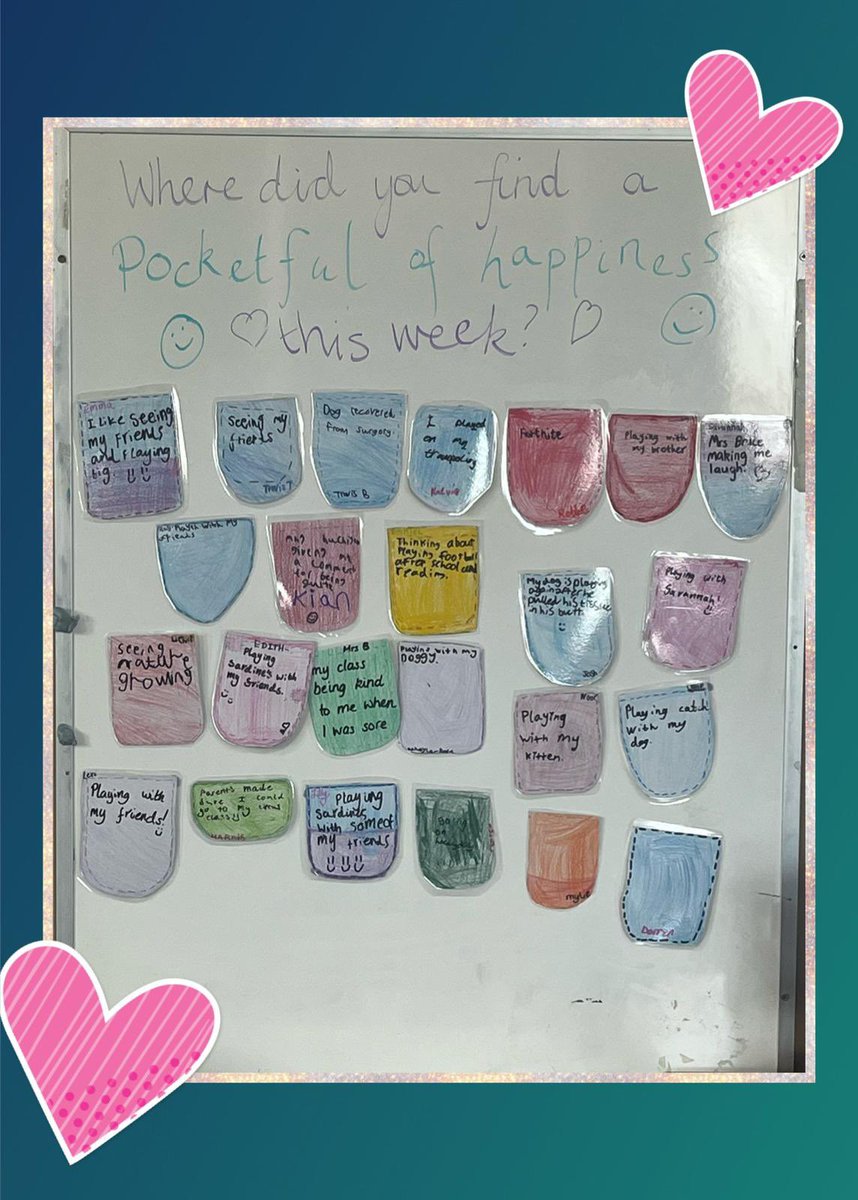 Where did you find a
Pocketful of happiness
this week?
Emma
I like seeing
my friends
and playing
tig.
Seeing my
friends
Travis T
Dog recovered
from surgery.
Travis B
I played
on my
Fortnite
Playing with
my brother
Savannah
Mrs Bruce
making me
laugh.
with my
friends
giving me
a
for being
Kian
Thinking about
Playing football
after school and
reading.
My dog is playing
again after he
pulled his
in his butt.
Josh
Playing with
Savannah!
seeing
nature
growing
EDITH
Playing
Sardines with
my friends.
Mrs B
my class
being kind
to me when
I was sore
Playing with my
DOGGY.
Playing
with my
kitten.
Playing catch
with my
dog.
Lexi
Playing with
my friends!
Parents made
sure I could
go to my
class
Playing
sardines
with some of
my friends
going
on
mylie